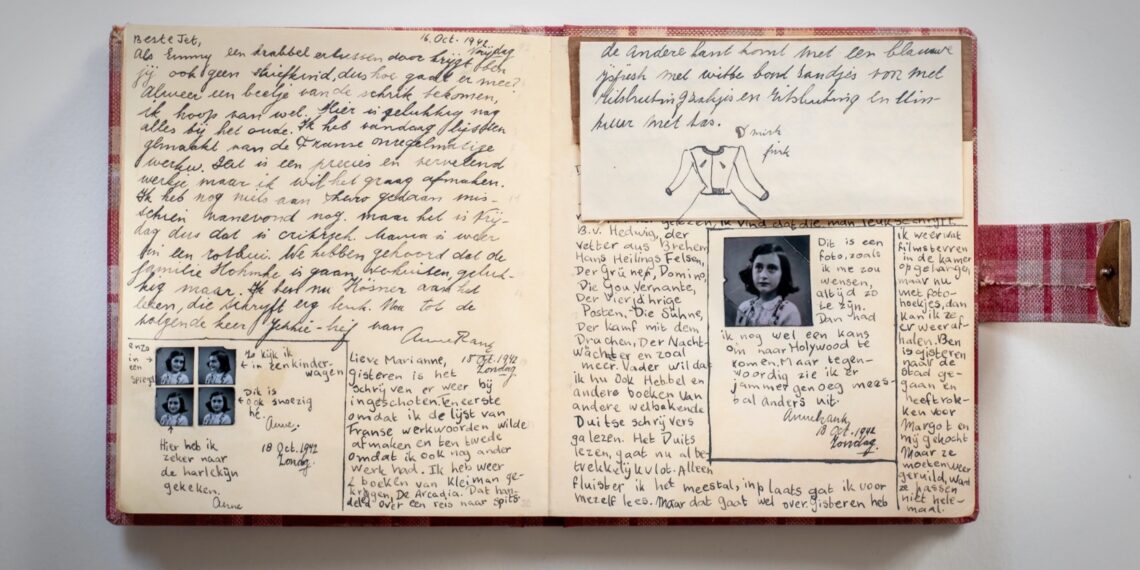 Beste Jet,
16. Oct. 1942
Vrijdag
Als Emmy een krabbel ertussen door krijgt ben
jij ook geen stiefkind, dus hoe gaat er mee?
Alweer een beetje van de schrik bekomen,
ik hoop van wel. Hier is gelukkig nog
alles bij het oude. Ik heb vandaag lijsten
gemaakt van de Franse onregelmatige
werkw. Dat is een precies en vervelend
werkje maar ik wil het graag afmaken.
Ik heb nog niets aan steno gedaan mis-
schien vanavond nog, maar het is Vrij-
dag dus dat is critisch. Mama is weer
in een rotbui. We hebben gehoord dat de
familie is gaan verhuizen, geluk-
kig maar. Ik ben nu Körner aan het
lezen, die schrijft erg leuk. Nou tot de
volgende keer Jettie-lief van
Anne Frank
enzo
in
een
spiegel
Zo kijk ik
in een kinder-
wagen
Dit is
ook snoezig
hè.
Anne.
Hier heb ik
zeker naar
de harlekijn
gekeken.
Anne
18 Oct. 1942
Zondag.
Lieve Marianne, 18 Oct. 1942
Zondag.
gisteren is het
schrijven er weer bij
ingeschoten. Ten eerste
omdat ik de lijst van
Franse werkwoorden wilde
afmaken en ten twede
omdat ik ook nog ander
werk had. Ik heb weer
2 boeken van Kleiman ge-
kregen, De Arcadia. Dat han-
deld over een reis naar Sp
de andere kant komt met een blauwe
ijsjesh met witte bond randjes voor met
ritsluiting zakjes en ritsluiting en
met tas.
gelezen, ik vind dat die man leuk schrijft
B.v. Hedwig, der
Vetter aus Bremen
Hans Heilings Felsen,
Der Grünep, Domino,
Die Gouvernante,
Der vierjährige
Posten, Die Sühne,
Der Kamf mit dem
Drachen, Der Nacht-
wächter en zoal
meer. Vader wil dat
ik nu ook Hebbel en
andere boeken van
andere welbekende
Duitse schrijvers
ga lezen. Het Duits
lezen, gaat nu al be-
trekkelijk vlot. Alleen
fluister ik het meestal, inplaats dat ik voor
mezelf lees. Maar dat gaat wel over. Gisteren heb
Dit is een
foto, zoals
ik me zou
wensen,
altijd zo
te zijn.
Dan had
ik nog wel een kans
om naar Holywood te
komen. Maar tegen-
woordig zie ik er
jammer genoeg mees-
tal anders uit.
Anne Frank
18 Oct. 1942
Zondag.
ik weer wat
filmsterren
in de kamer
opgehangen,
maar nu
met foto-
hoekjes, dan
kan ik ze
er weer af-
halen. Bep
is gisteren
naar de
stad ge-
gaan en
heeft rok-
ken voor
Margot en
mij gekocht
Maar ze
moeten weer
geruild, want
ze passen
niet hele-
maal.